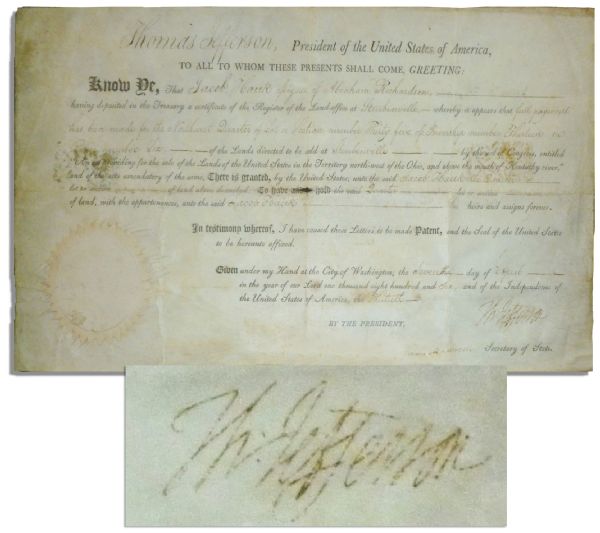 Thomas Jefferson, President of the United States of America,
TO ALL TO WHOM THESE PRESENTS SHALL COME, GREETING:
Know Ye, That Jacob Hauck Assignee of Abraham Richardson,
having deposited in the Treasury a certificate of the Register of the Land-office at Steubenville whereby it appears that full payment
has been made for the Quarter of section number Thirty five of Township number in
number Six of the Lands directed to be sold at Steubenville by the of Congress, entitled
An act providing for the sale of the Lands of the United States in the Territory north-west of the Ohio, and above the mouth of Kentucky river,
and of the acts amendatory of the same, There is granted, by the United States, unto the said Jacob Hauck the Quarter
or section of land above described To have and hold the said Quarter or section
of land, with the appurtenances, unto the said Jacob Hauck his heirs and assigns forever.
In testimony whereof, I have caused these Letters to be made Patent, and the Seal of the United States
to be hereunto affixed.
Given under my Hand at the City of Washington, the Seventh day of April
in the year of our Lord one thousand eight hundred and Six, and of the Independence of
the United States of America, the Thirtieth
Th: Jefferson
BY THE PRESIDENT,
Secretary of State.
Th: Jefferson